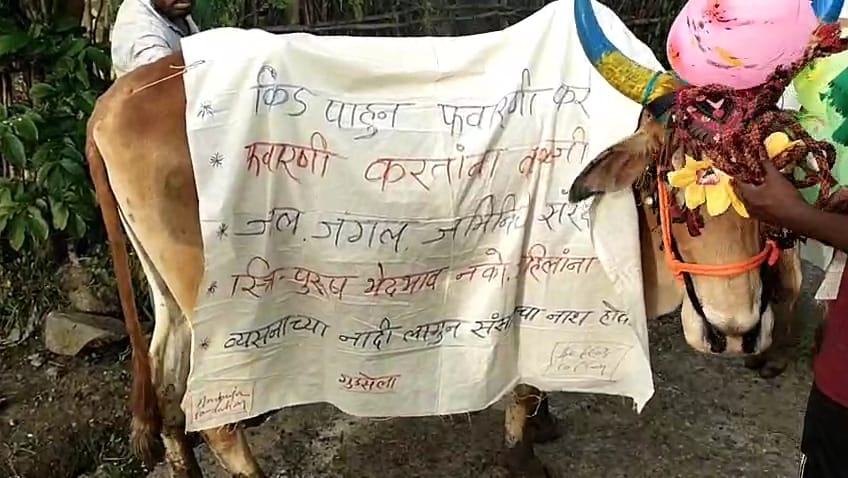 * किड पाहुन फवारणी कर
* फवारणी करतांना
* जल. जंगल. जमिनिचे संर
* स्त्रि-पुरुष भेदभाव नको. हिलांना
* व्यसनाच्या नादी लागुन संसाचा नाश होद
गुडसेला